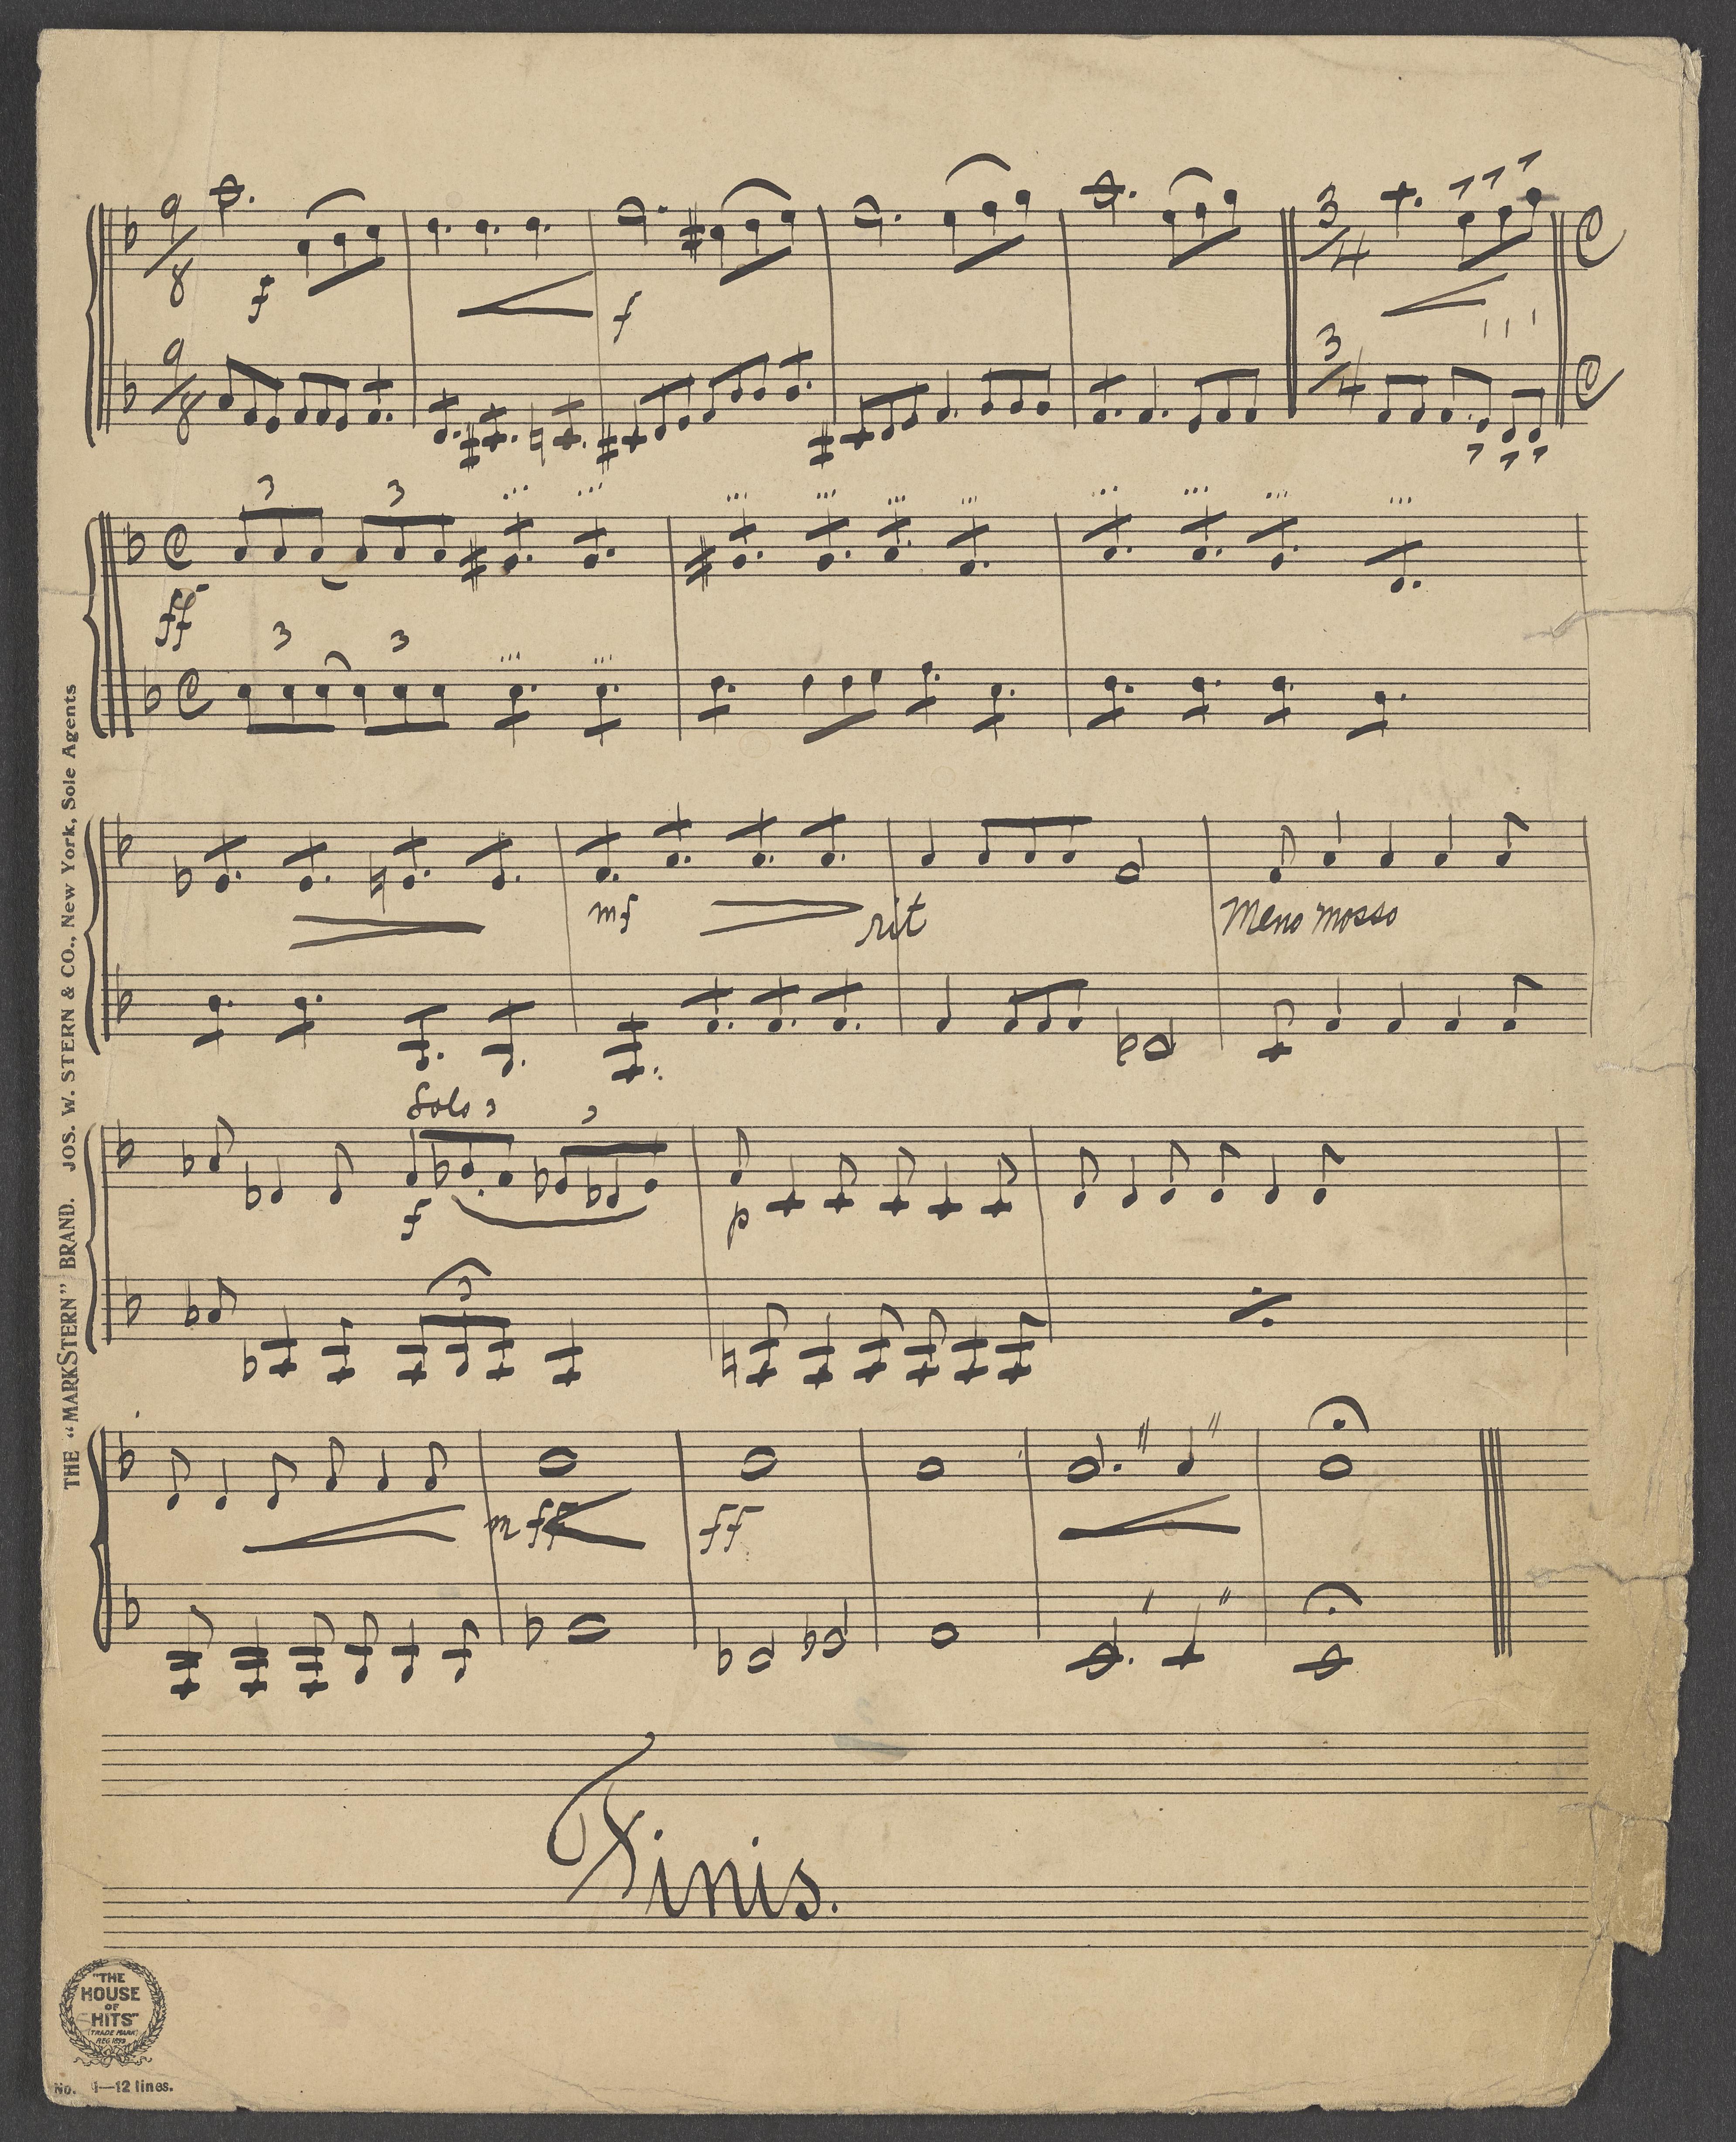 9/8 f f 3/4 C
9/8 3/4 C
3 3
C
ff
3 3
C
mf rit Meno mosso
Solo 3 3
f p
3
mff ff
Finis.
THE "MARKSTERN" BRAND. JOS. W. STERN & CO., New York, Sole Agents
"THE
HOUSE
OF
HITS"
(TRADE MARK)
REG 1899
No. 1—12 lines.